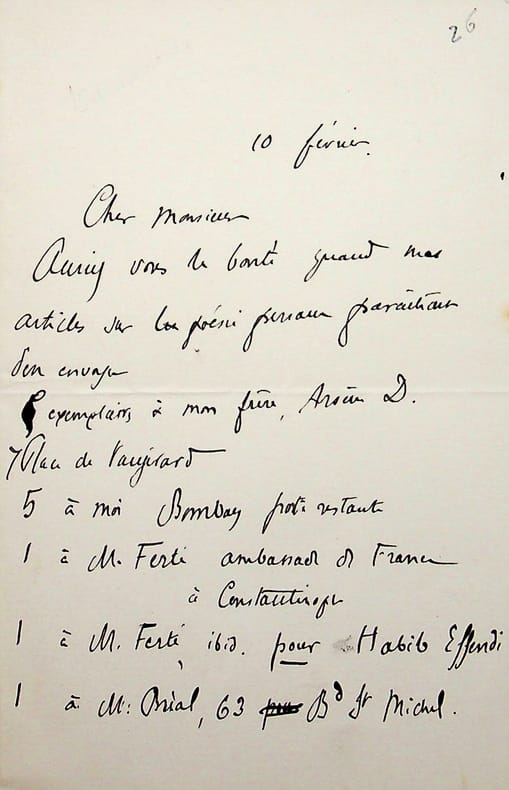 26
10 février.
Cher Monsieur
Auriez vous la bonté quand mes
articles sur la poésie persane paraîtront
d'en envoyer
exemplaires à mon frère, Arsène D.
7 Place de Vaugirard
5 à moi Bombay poste restante
1 à M. Ferté ambassade de France
à Constantinople
1 à M. Ferté, ibid. pour Habib Effendi
1 à M. Bréal, 63 Bd St Michel.